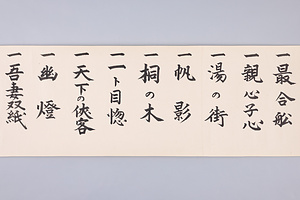 一最合舩
一親心子心
一湯の街
一帆影
一桐の木
一一ト目惚
一天下の侠客
一幽燈
一吾妻双紙